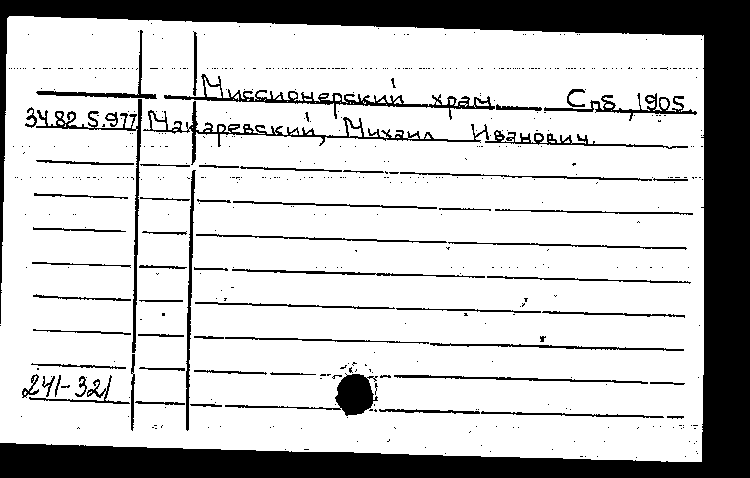 Миссионерский храм. Спб., 1905.
34.82.5.977 Макаревский, Михаил Иванович.
241-321